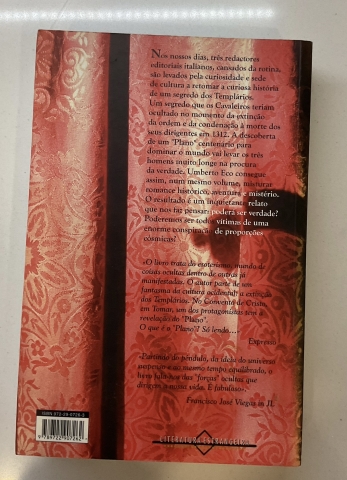 Nos nossos dias, três redactores
editoriais italianos, cansados da rotina,
são levados pela curiosidade e sede
de cultura a retomar a curiosa história
de um segredo dos Templários.
Um segredo que os Cavaleiros teriam
ocultado no momento da extinção
da ordem e da condenação à morte dos
seus dirigentes em 1312. A descoberta
de um "Plano" centenário para
dominar o mundo vai levar os três
homens muito longe na procura
da verdade. Umberto Eco consegue
assim, num mesmo volume, misturar
romance histórico, aventura e mistério.
O resultado é um inquietante relato
que nos faz pensar: poderá ser verdade?
Poderemos ser todos vítimas de uma
enorme conspiração de proporções
cósmicas?
«O livro trata do esoterismo, mundo de
coisas ocultas dentro de outras já
manifestadas. O autor parte de um
fantasma da cultura ocidental: a extinção
dos Templários. No Convento de Cristo,
em Tomar, um dos protagonistas tem a
revelação do "Plano".
O que é o "Plano"? Só lendo...»
Expresso
«Partindo do pêndulo, da ideia do universo
suspenso e ao mesmo tempo equilibrado, o
livro fala-nos das "forças" ocultas que
dirigem a nossa vida. É fabuloso.»
Francisco José Viegas in JL
LITERATURA ESTRANGEIRA
ISBN 972-29-0726-2
9789722907262